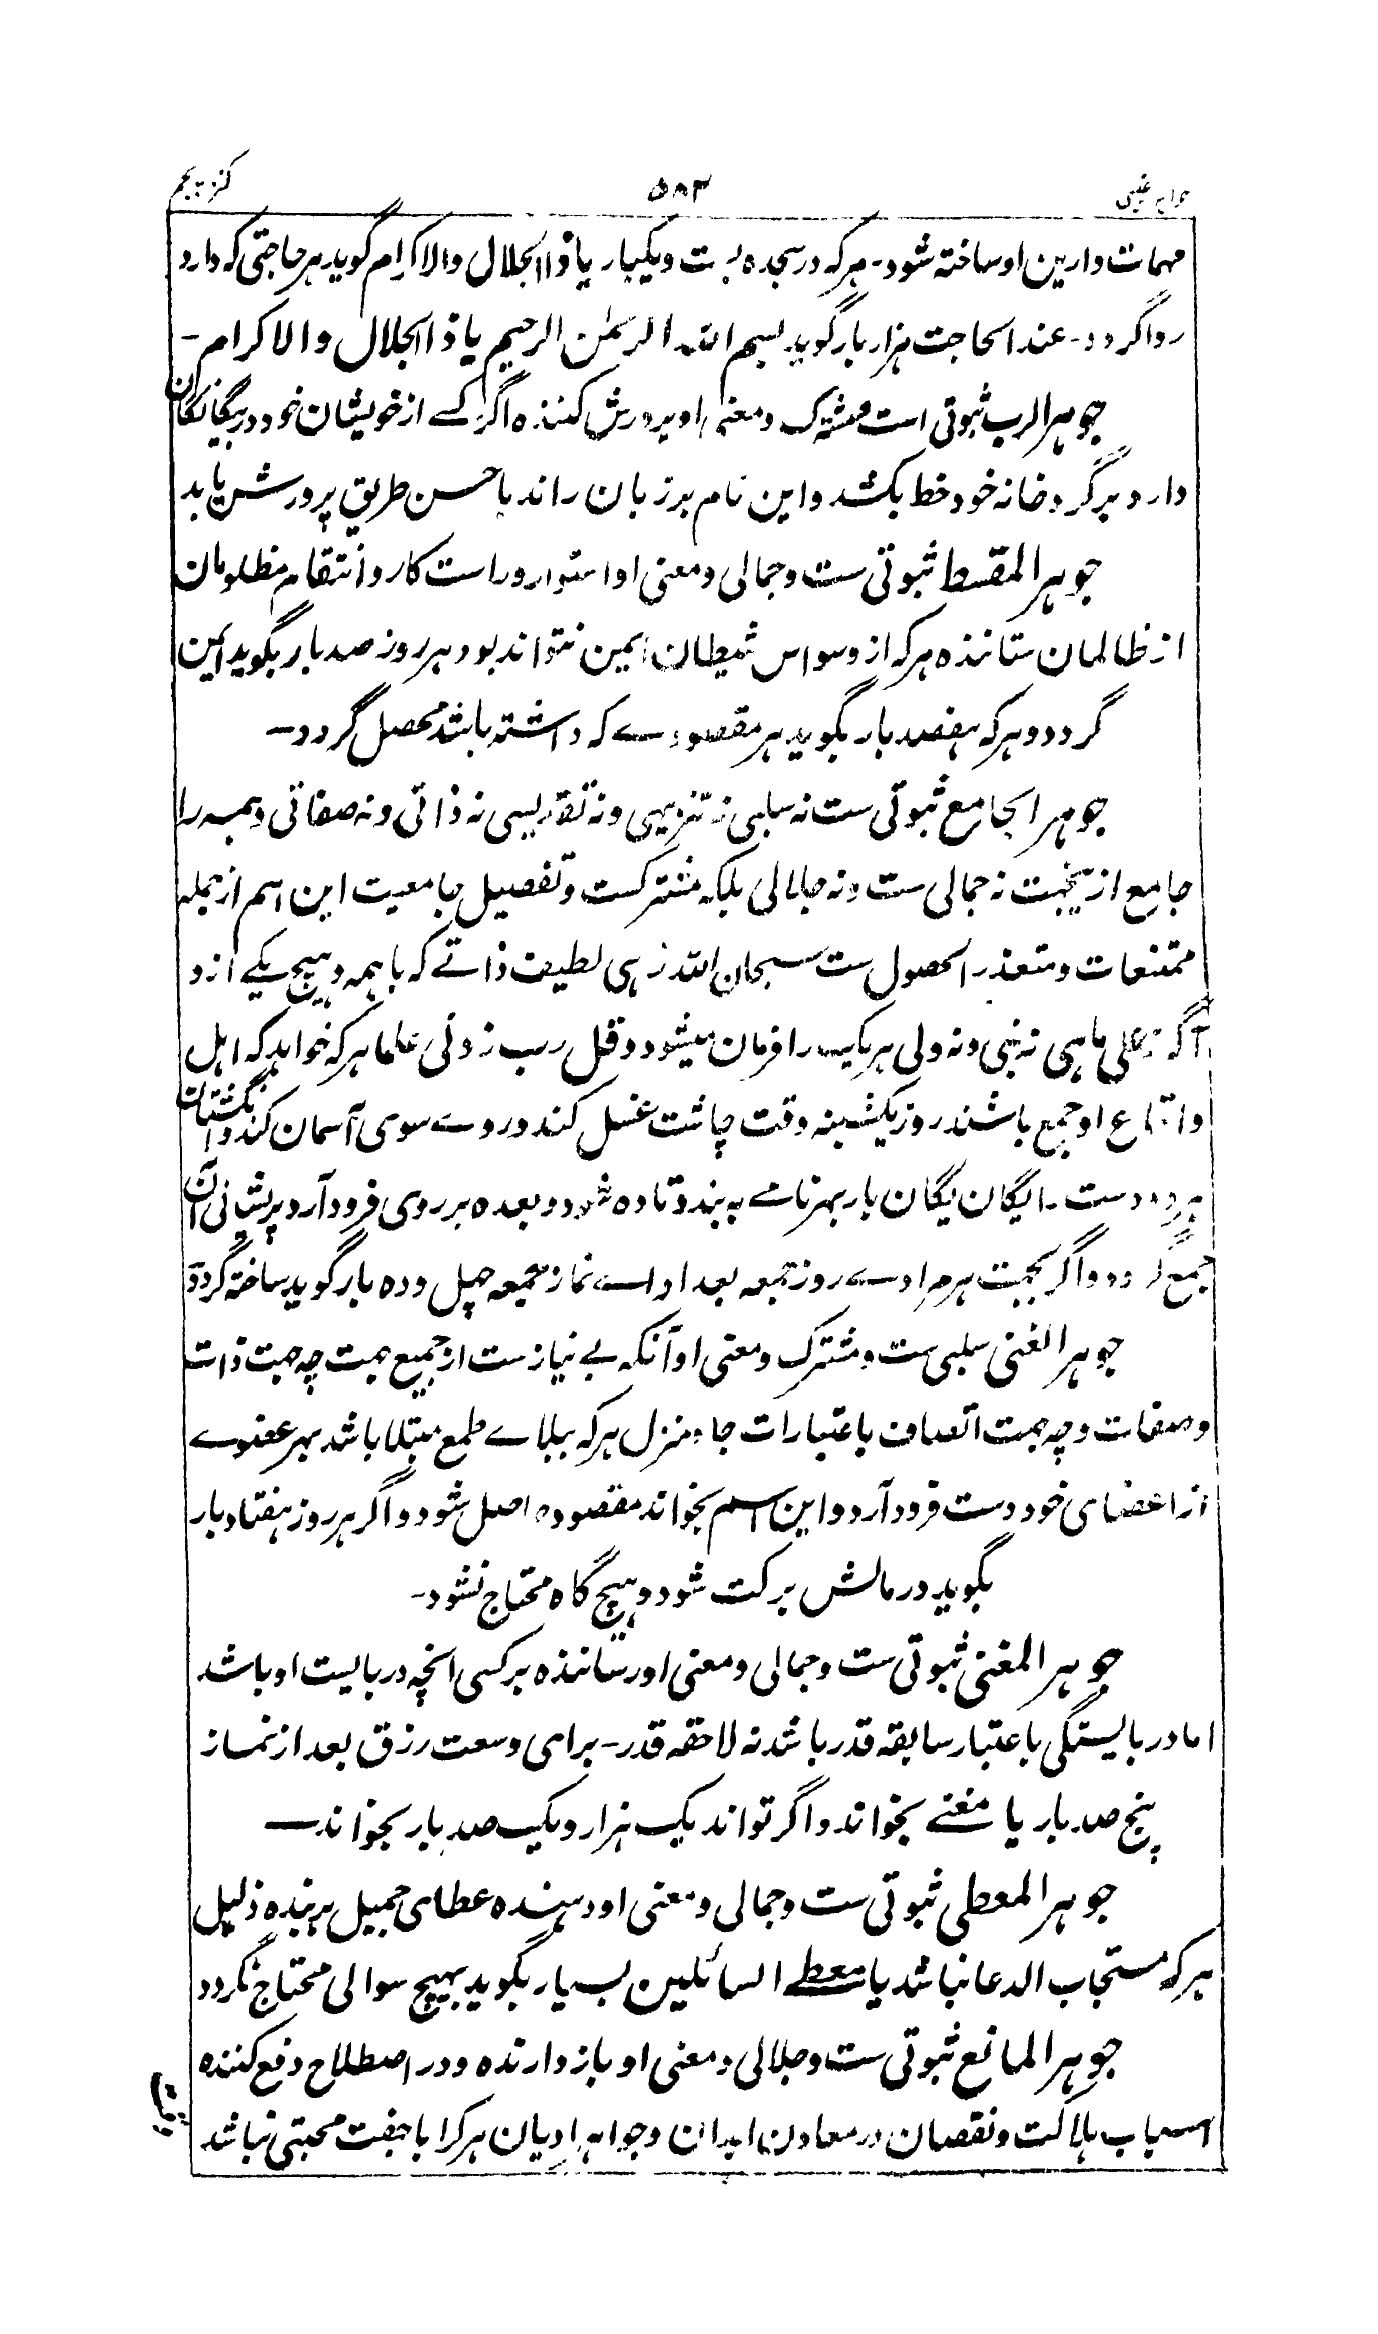 جواہر غیبی ۵۸۳ کنز پنجم
مهمات دارین او ساخته شود۔ هرکه در سجده بست و یکبار یا ذا الجلال والاکرام گوید هر حاجتی که دارد
روا گردد۔ عند الحاجت هزار بار گوید بسم الله الرحمٰن الرحیم یا ذا الجلال والاکرام۔
جوهر الرب ثبوتی است مشترک و معنی او پرورش کننده اگر کسے از خویشان خود در بیگانگان
دارد برگرد خانه خود خط بکشد و این نام بر زبان راند باحسن طریق پرورش یابد
جوهر المقسط ثبوتی ست و جمالی و معنی او استوار و راست کار و انتقام مظلومان
از ظالمان ستاننده هرکه از وسواس شیطان ایمن نتواند بود هر روز صد بار بگوید ایمن
گردد و هرکه هفصد بار بگوید هر مقصودے که داشته باشد محصل گردد۔
جوهر الجامع ثبوتی ست نه سلبی نه تنزیهی و نه تقدیسی نه ذاتی و نه صفاتی و همه را
جامع ازینجهت نه جمالی ست و نه جلالی بلکه مشترکست و تفصیل جامعیت این اسم از جمله
ممتنعات و متعذر الحصول ست سبحان الله زهی لطیف ذاتے که باهمه و هیچ یکے ازو
آگه علی ماهی نه نبی و نه ولی هر یک را فرمان میشود و قل رب زدنی علما هرکه خواهد که اهل
و اتباع او جمع باشند روز یکشنبه وقت چاشت غسل کند و روے سوی آسمان کند و انگشتان
هر دو دست را یگان یگان بار بهر نامے به بندد تا ده شود و بعده بر روی فرود آرد پریشانی آن
جمع گردد و اگر بجهت هر مرادے روز جمعه بعد اداے نماز جمعه چهل و ده بار گوید ساخته گردد
جوهر الغنی سلبی ست و مشترک و معنی او آنکه بے نیازست از جمیع جهت چه جهت ذات
و صفات و چه جهت اتصاف باعتبارات جاه و منزل هرکه ببلاے طمع مبتلا باشد بهر عضوے
از اعضای خود دست فرود آرد و این اسم بخواند مقصود حاصل شود و اگر هر روز هفتاد بار
بگوید در مالش برکت شود و هیچ گاه محتاج نشود۔
جوهر المغنی ثبوتی ست و جمالی و معنی او رساننده برکسی انچه دربایست او باشد
اما در بایستگی باعتبار سابقه قدر باشد نه لاحقه قدر۔ برای وسعت رزق بعد از نماز
پنج صد بار یا مغنے بخواند و اگر تواند یک هزار و یک صد بار بخواند۔
جوهر المعطی ثبوتی ست و جمالی و معنی او دهنده عطای جمیل بر بنده ذلیل
هرکه مستجاب الدعا نباشد یا معطے السائلین بسیار بگوید بهیچ سوالی محتاج نگردد
جوهر المانع ثبوتی ست و جلالی و معنی او بازدارنده و در اصطلاح دفع کننده
اسباب هلاکت و نقصان در معادن ابدان و جواهر ادیان هر کرا با جفت محبتی نباشد